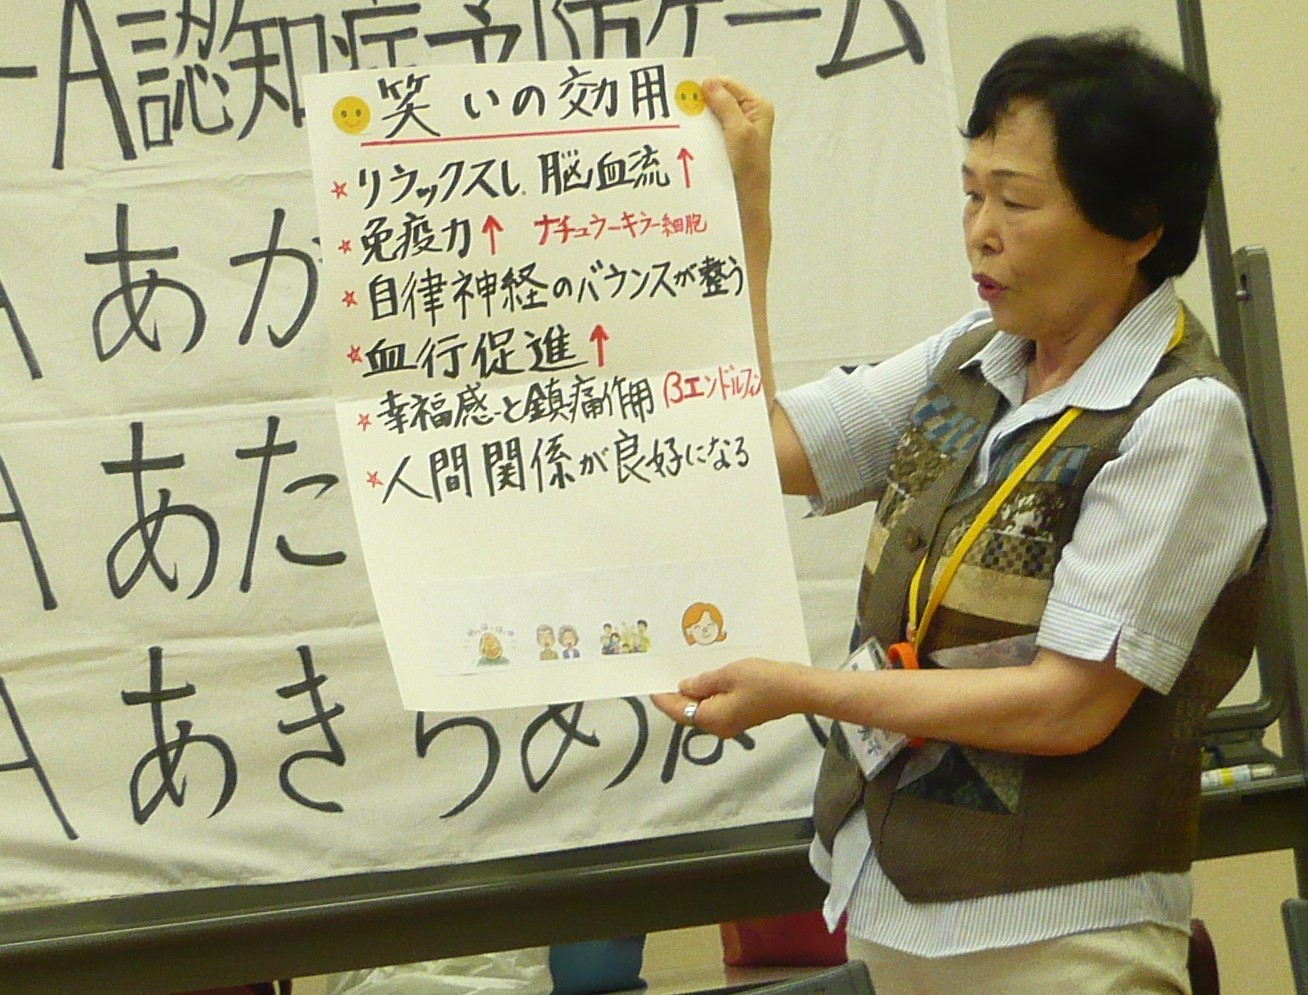 A認知症予防ゲーム
笑いの効用
リラックスし、脳血流↑
免疫力↑ ナチュラーキラー細胞
自律神経のバランスが整う
血行促進↑
幸福感と鎮痛作用 βエンドルフィン
人間関係が良好になる
A あか
A あた
A あきらめない